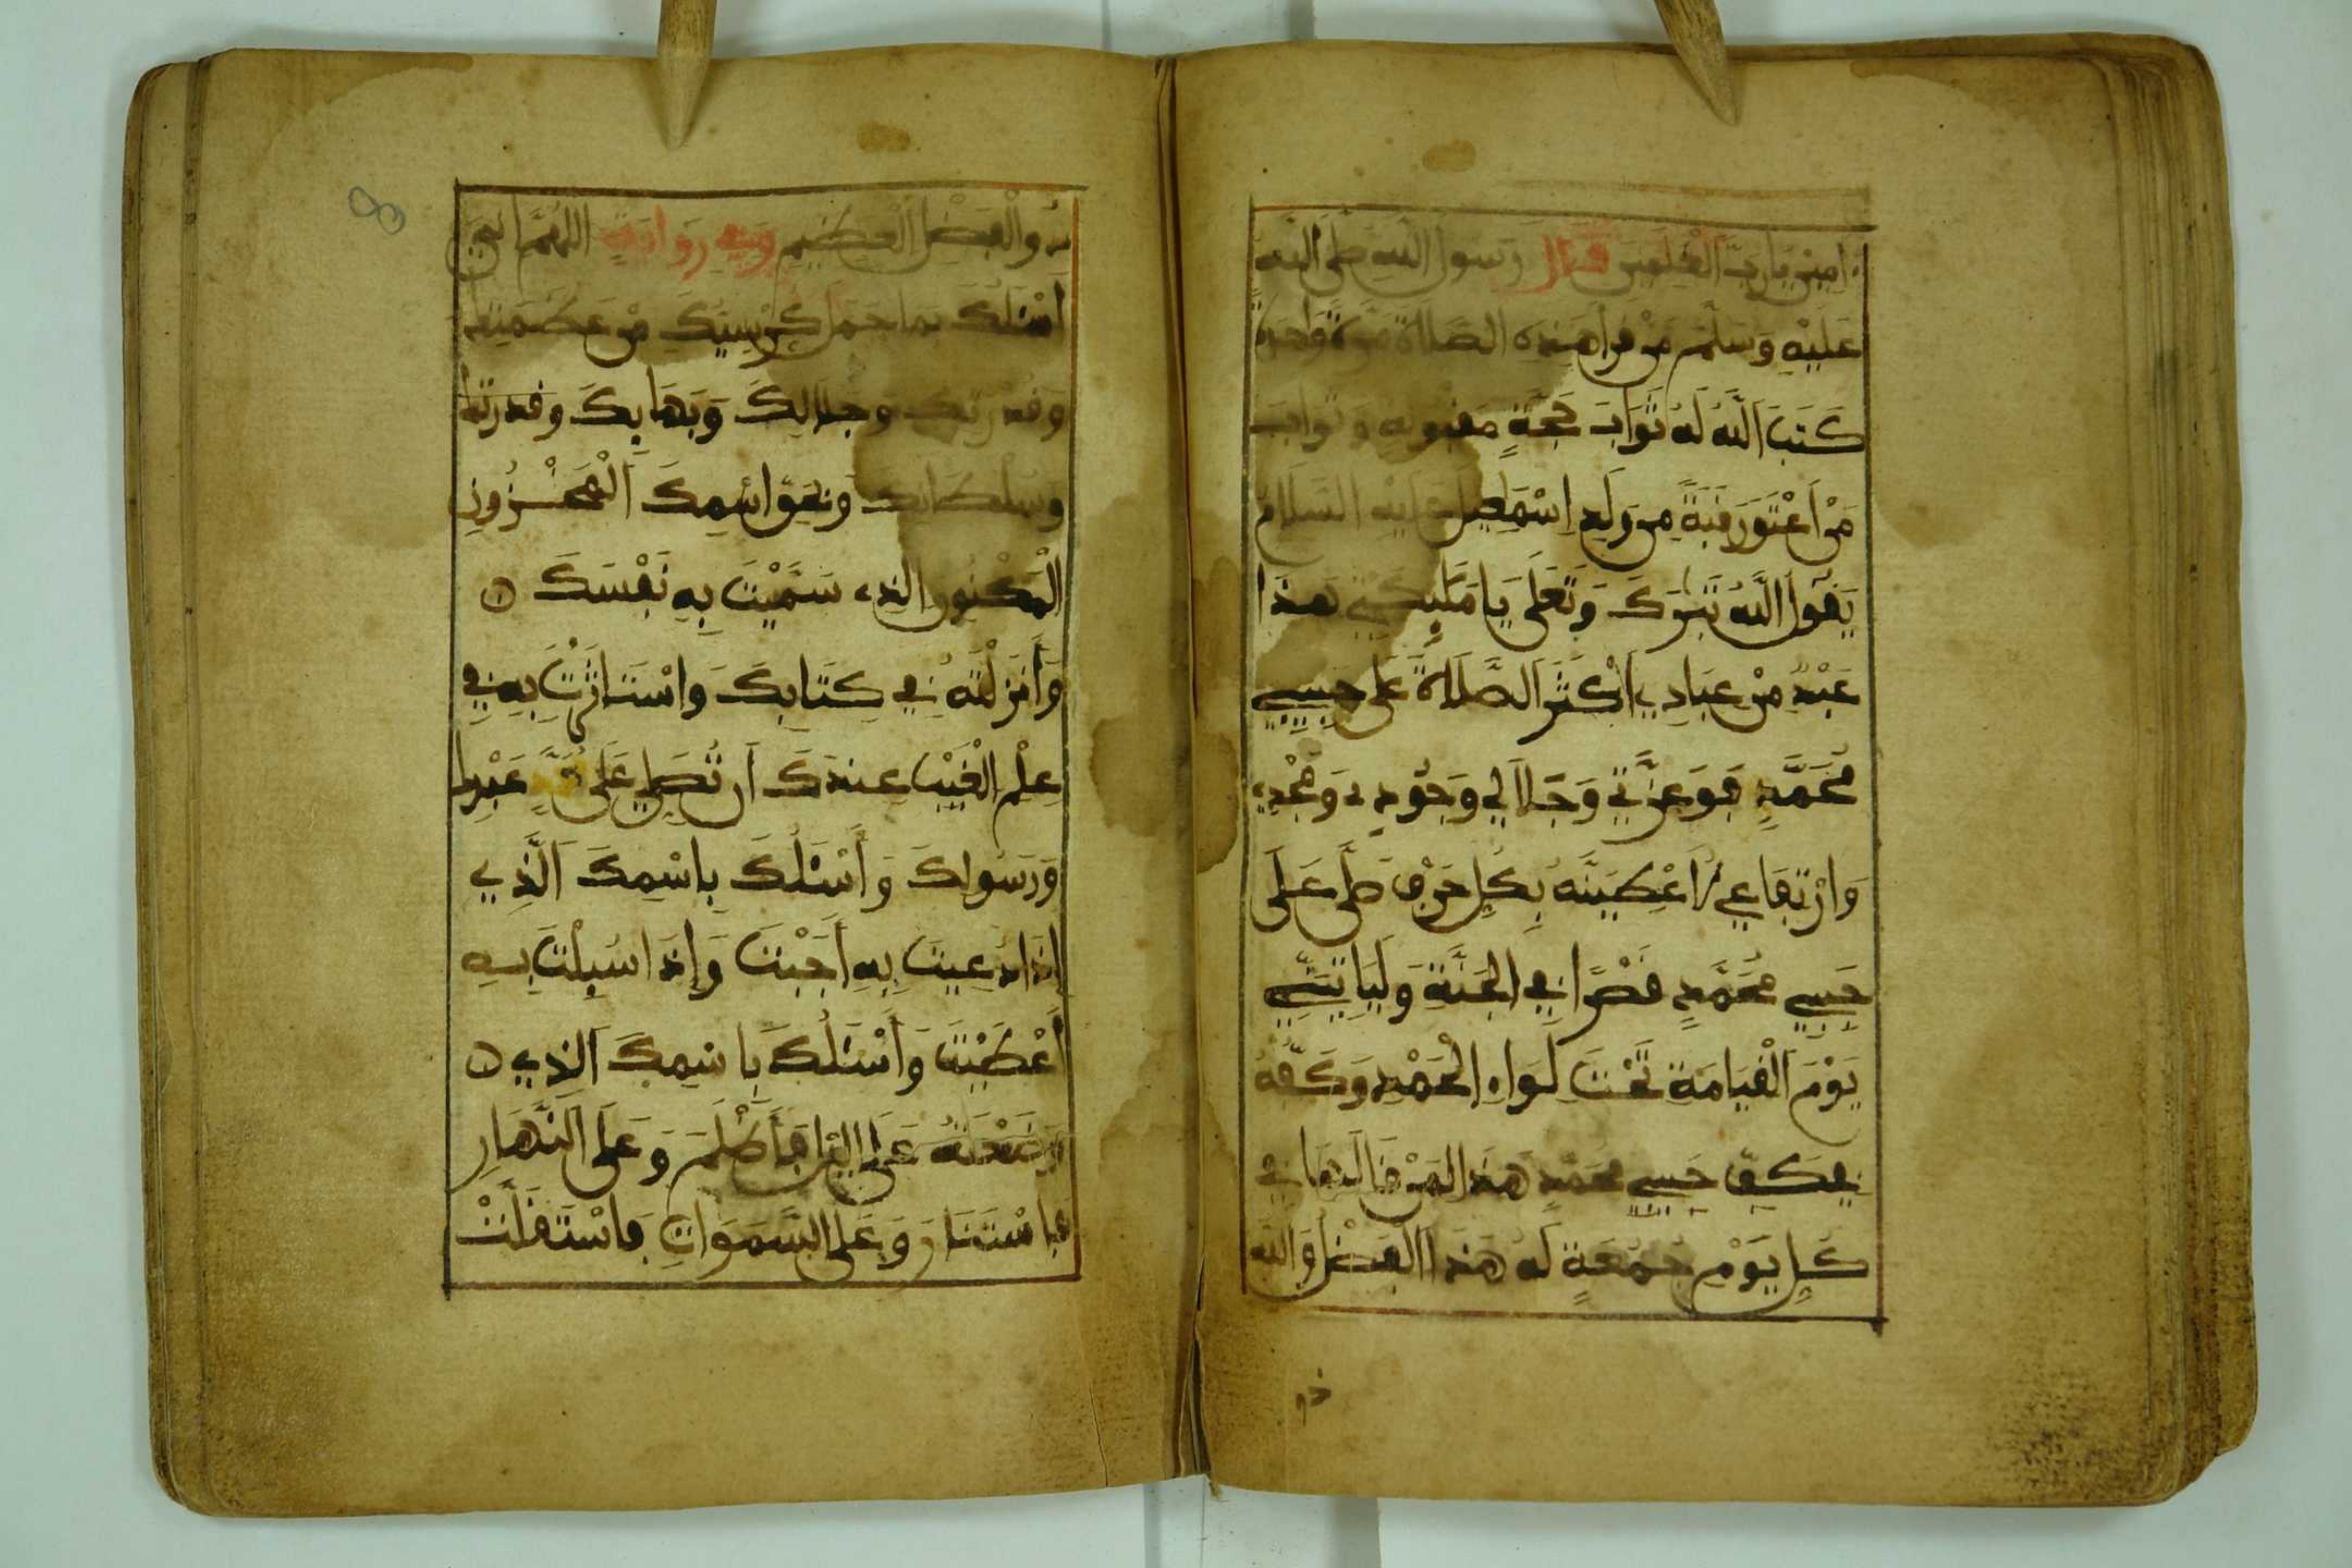 امِينَ يَا رَبَّ الْعٰلَمِينَ قال رَسُولُ اللّٰهِ صَلَّى اللّٰهُ
عَلَيْهِ وَسَلَّمَ مَنْ قرأ هَذِهِ الصَّلاةَ مَرَّةً وَاحِدَةً
كَتَبَ اَللّٰهُ لَهُ ثَوَابَ حَجَّةٍ مَقْبُولَةٍ وَثَوَابَ
مَنْ اَعْتَقَ رَقَبَةً مِن وَلَدِ اِسْمَٰعِيلَ عَلَيْهِ السَّلَامُ
يَقُولُ اَللّٰهُ تَبَٰرَكَ وَتَعَلَى يَا مَلَٰئِكَتِي هَذَا
عَبْدٌ مِنْ عِبَادِي أَكْثَرَ الصَّلَاةَ عَلَى حَبِيبِي
مُحَمَّدٍ فَوَعِزَّتِي وَجَلَالِي وَجُودِي وَمَجْدِي
وَارْتِفَاعِي لَأُعْطِيَنَّهُ بِكُلِّ حَرْفٍ صَلَّى عَلَى
حَبِيبِي مُحَمَّدٍ قَصْرًا فِي الْجَنَّةِ وَلَيَاتِيَنِّي
يَوْمَ الْقِيَامَةِ تَحْتَ لِوَاءِ الْحَمْدِ وَكَفُّهُ
فِي كَفِّ حَبِيبِي مُحَمَّدٍ هَذَا لِمَنْ قَالَهَا فِي
كُلِّ يَوْمِ جُمُعَةٍ لَهُ هَذَا الْفَضْلُ وَاللّٰهُ
ذو
ذُو الْفَضْلِ الْعَظِيمِ وَفِي رِوَايَةٍ اللّٰهُمَّ اِنِّي
أَسْئَلُكَ بِمَا حَمَلَ كُرْسِيُّكَ مِنْ عَظَمَتِكَ
وَقُدْرَتِكَ وَجَلَالِكَ وَبَهَائِكَ وَقُدْرَتِكَ
وَسُلْطَانِكَ وَبِحَقِّ اسْمِكَ الْمَخْزُونِ
الْمَكْنُونِ الَّذِي سَمَّيْتَ بِهِ نَفْسَكَ
وَأَنزَلْتَهُ فِي كِتَابِكَ وَاسْتَاثَرْتَ بِهِ فِي
عِلْمِ الْغَيْبِ عِندَكَ أَن تُصَلِّيَ عَلَى مُحَمَّدٍ عَبْدِكَ
وَرَسُولِكَ وَأَسْئَلُكَ بِاسْمِكَ الَّذِي
إِذَا دُعِيتَ بِهِ أَجَبْتَ وَإِذَا سُئِلْتَ بِهِ
أَعْطَيْتَ وَأَسْئَلُكَ بِاسْمِكَ الَّذِي
وَضَعْتَهُ عَلَى اللَّيْلِ فَأَظْلَمَ وَعَلَى النَّهَارِ
فَاسْتَنَارَ وَعَلَى السَّمَوَاتِ فَاسْتَقَلَّتْ